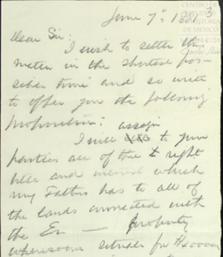 June 7th 188
Dear Sir:
I wish to settle this
matter in the shortest pos-
sible time and so write
to offer you the following
proposition:
I will assign to your
parties all of the right
title and interest which
my Father has to all of
the lands connected with
the En — property
wheresoever situate for